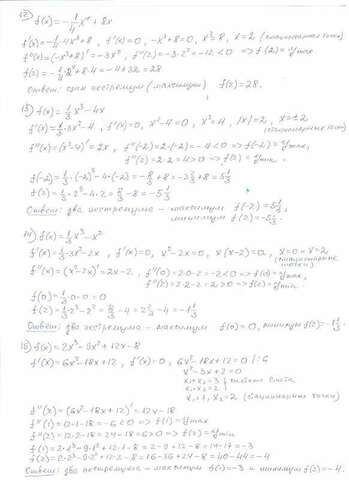 12) f(x) = -1/4 x⁴ + 8x
f'(x) = -1/4·4x³ + 8, f'(x)=0, -x³+8=0, x³=8, x=2 (стационарная точка)
f''(x) = (-x³+8)' = -3x², f''(2) = -3·2² = -12 < 0 => f(2) = y max
Ответ: один экстремум (максимум) f(2)=28.
13) f(x) = 1/3 x³ - 4x
f'(x) = 1/3·3x² - 4, f'(x)=0, x²-4=0, x²=4, |x|=2, x=±2
(стационарные точки)
f''(x) = (x²-4)' = 2x, f''(-2) = 2·(-2) = -4 < 0 => f(-2) = y max,
f''(2) = 2·2 = 4 > 0 => f(2) = y min.
f(-2) = 1/3·(-2)³ - 4·(-2) = -8/3 + 8 = -2 2/3 + 8 = 5 1/3
f(2) = 1/3·2³ - 4·2 = 8/3 - 8 = -5 1/3
Ответ: два экстремума - максимум f(-2) = 5 1/3,
минимум f(2) = -5 1/3.
14) f(x) = 1/3 x³ - x²
f'(x) = 1/3·3x² - 2x, f'(x)=0, x²-2x=0, x(x-2)=0, x=0 и x=2
(стационарные точки)
f''(x) = (x²-2x)' = 2x-2, f''(0) = 2·0-2 = -2 < 0 => f(0) = y max,
f''(2) = 2·2-2 = 2 > 0 => f(2) = y min.
f(0) = 1/3·0-0 = 0
f(2) = 1/3·2³ - 2² = 8/3 - 4 = 2 2/3 - 4 = -1 1/3
Ответ: два экстремума - максимум f(0)=0, минимум f(2) = -1 1/3.
15) f(x) = 2x³ - 9x² + 12x - 8
f'(x) = 6x² - 18x + 12, f'(x)=0, 6x²-18x+12=0 /:6
x²-3x+2=0
x₁+x₂=3
x₁·x₂=2
x₁=1, x₂=2 (стационарные точки)
f''(x) = (6x²-18x+12)' = 12x-18
f''(1) = 12·1-18 = -6 < 0 => f(1) = y max
f''(2) = 12·2-18 = 24-18 = 6 > 0 => f(2) = y min
f(1) = 2·1³-9·1²+12·1-8 = 2-9+12-8 = 14-17 = -3
f(2) = 2·2³-9·2²+12·2-8 = 16-36+24-8 = 40-44 = -4
Ответ: два экстремума - максимум f(1)=-3 и минимум f(2)=-4.